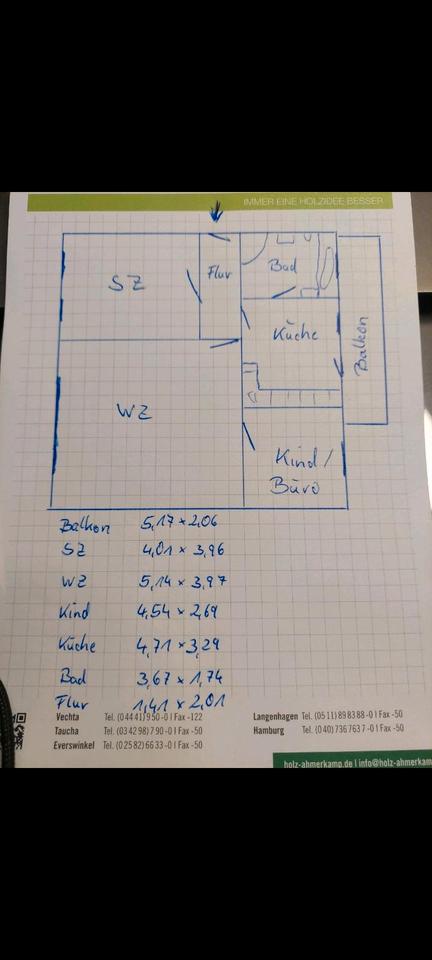 IMMER EINE HOLZIDEE BESSER
SZ
Flur
Bad
Küche
Balkon
WZ
Kind/
Büro
Balkon 5,17 × 2,06
SZ 4,01 × 3,96
WZ 5,14 × 3,97
Kind 4,54 × 2,69
Küche 4,71 × 3,29
Bad 3,67 × 1,74
Flur 1,41 × 2,01
Vechta Tel. (0 44 41) 9 50 -0 | Fax -122
Taucha Tel. (03 42 98) 7 90 -0 | Fax -50
Everswinkel Tel. (0 25 82) 66 33 -0 | Fax -50
Langenhagen Tel. (05 11) 89 83 88 -0 | Fax -50
Hamburg Tel. (0 40) 736 763 7 -0 | Fax -50
holz-ahmerkamp.de | info@holz-ahmerkam